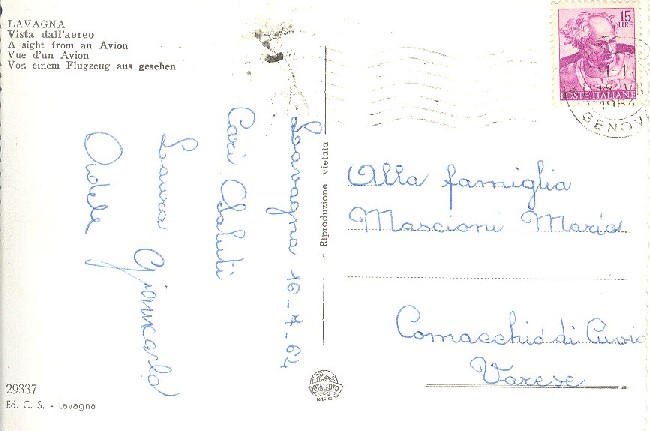 LAVAGNA
Vista dall'aereo
A sight from an Avion
Vue d'un Avion
Von einem Flugzeug aus gesehen
15
LIRE
POSTE ITALIANE
1964
GENOV
Lavagna 16-7-64
Cari Saluti
Laura Giancarla
Adele
Riproduzione vietata
Alla famiglia
Mascioni Maria
Comacchio di Cuvio
Varese
29337
Ed. C. S. - Lavagna